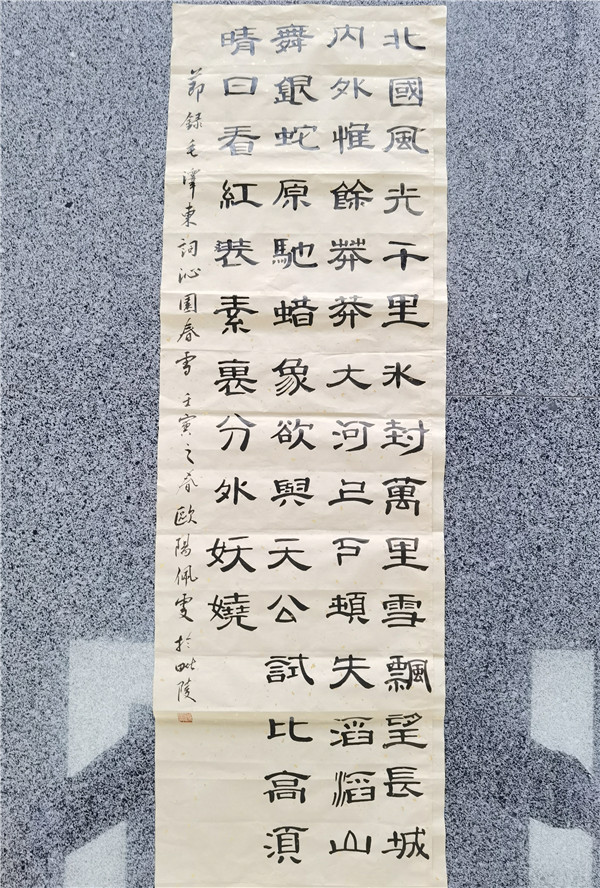 北國風光千里氷封萬里雪飄望長城
内外惟餘莽莽大河上下頓失滔滔山
舞銀蛇原馳蜡象欲與天公試比高須
晴日看紅裝素裹分外妖嬈
節録毛澤東詞沁園春雪壬寅之春歐陽佩雯於毗陵